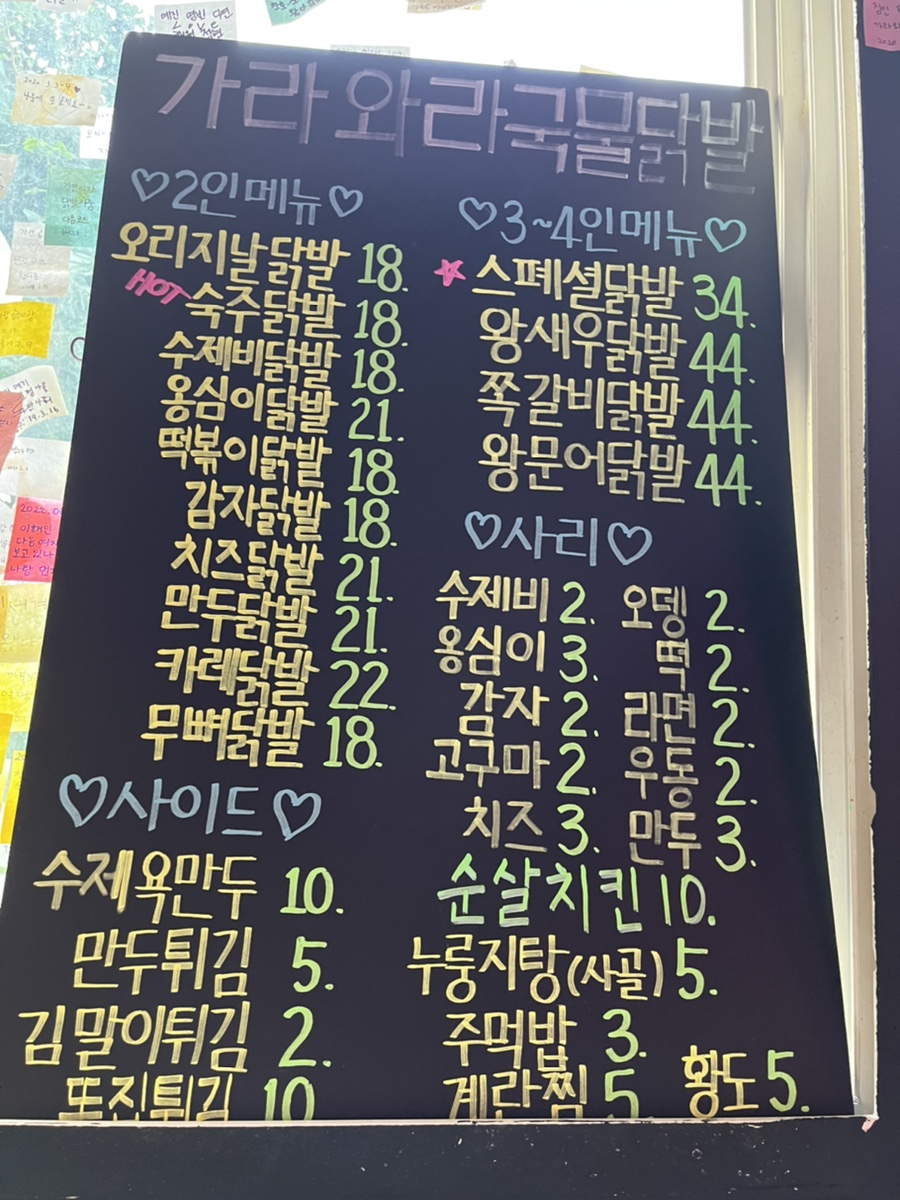 가라와라국물닭발
♡2인메뉴♡
오리지날닭발 18.
HOT 숙주닭발 18.
수제비닭발 18.
옹심이닭발 21.
떡볶이닭발 18.
감자닭발 18.
치즈닭발 21.
만두닭발 21.
카레닭발 22.
무뼈닭발 18.
♡사이드♡
수제욕만두 10.
만두튀김 5.
김말이튀김 2.
10
♡3~4인메뉴♡
스페셜닭발 34.
왕새우닭발 44.
쪽갈비닭발 44.
왕문어닭발 44.
♡사리♡
수제비 2. 오뎅 2.
옹심이 3. 떡 2.
감자 2. 라면 2.
고구마 2. 우동 2.
치즈 3. 만두 3.
순살치킨 10.
누룽지탕(사골) 5.
주먹밥 3.
계란찜 5 황도 5.